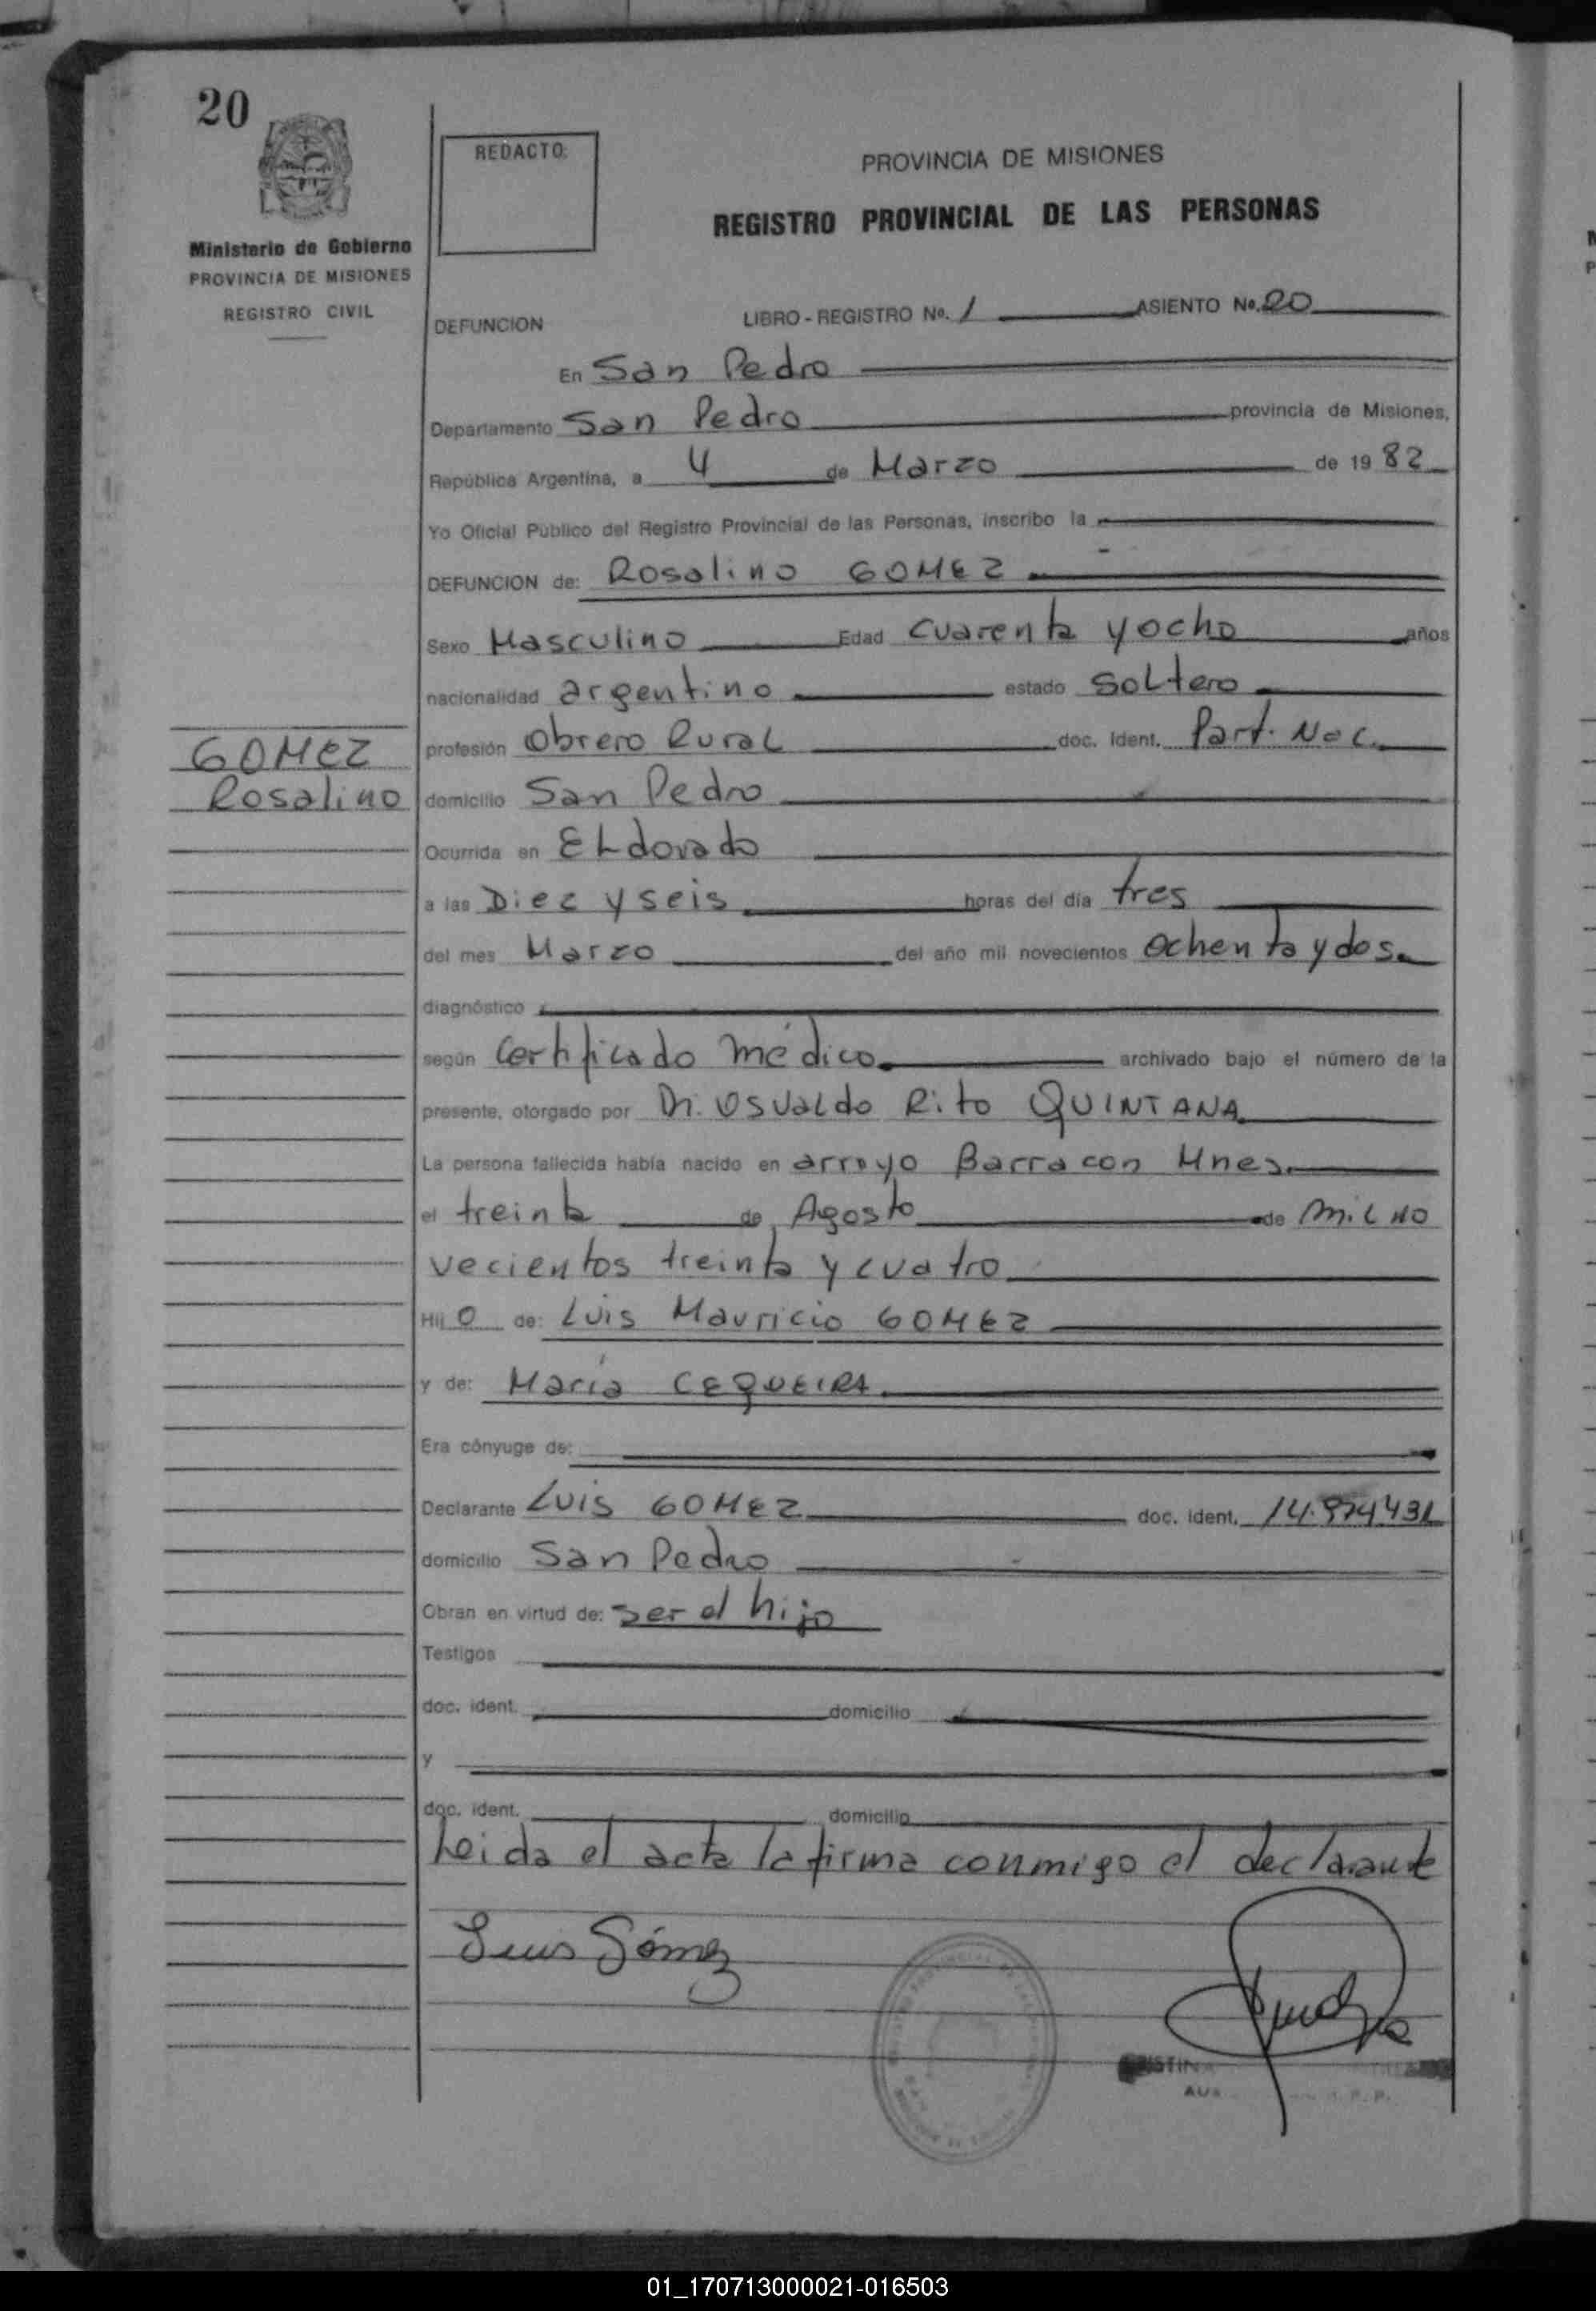 20
REDACTO:
PROVINCIA DE MISIONES
REGISTRO PROVINCIAL DE LAS PERSONAS
Ministerio de Gobierno
PROVINCIA DE MISIONES
REGISTRO CIVIL
DEFUNCION LIBRO-REGISTRO No. 1 ASIENTO No. 20
En San Pedro
Departamento San Pedro provincia de Misiones,
República Argentina, a 4 de Marzo de 1982
Yo Oficial Público del Registro Provincial de las Personas, inscribo la
DEFUNCION de: Rosalino GOMEZ
Sexo Masculino Edad cuarenta y ocho años
nacionalidad argentino estado SoLtero
GOMEZ
Rosalino
profesión Obrero RuraL doc. Ident. Part. Nac.
domicilio San Pedro
Ocurrida en ELdorado
a las Diec y seis horas del día tres
del mes Marzo del año mil novecientos ochenta y dos
diagnóstico
según Certificado médico archivado bajo el número de la
presente, otorgado por Dr. OsvaLdo Rito QUINTANA
La persona fallecida había nacido en arroyo Barracon Mnes.
el treinta de Agosto de miL no
vecientos treinta y cuatro
Hijo de: Luis Mauricio GOMEZ
y de: María CEQUEIRA
Era cónyuge de:
Declarante Luis GOMEZ doc. ident.
domicilio San Pedro
Obran en virtud de: ser el hijo
Testigos
doc. ident. domicilio
y
doc. ident. domicilio
Leida el acta la firma conmigo el declarante
Luis Gómez
01_170713000021-016503